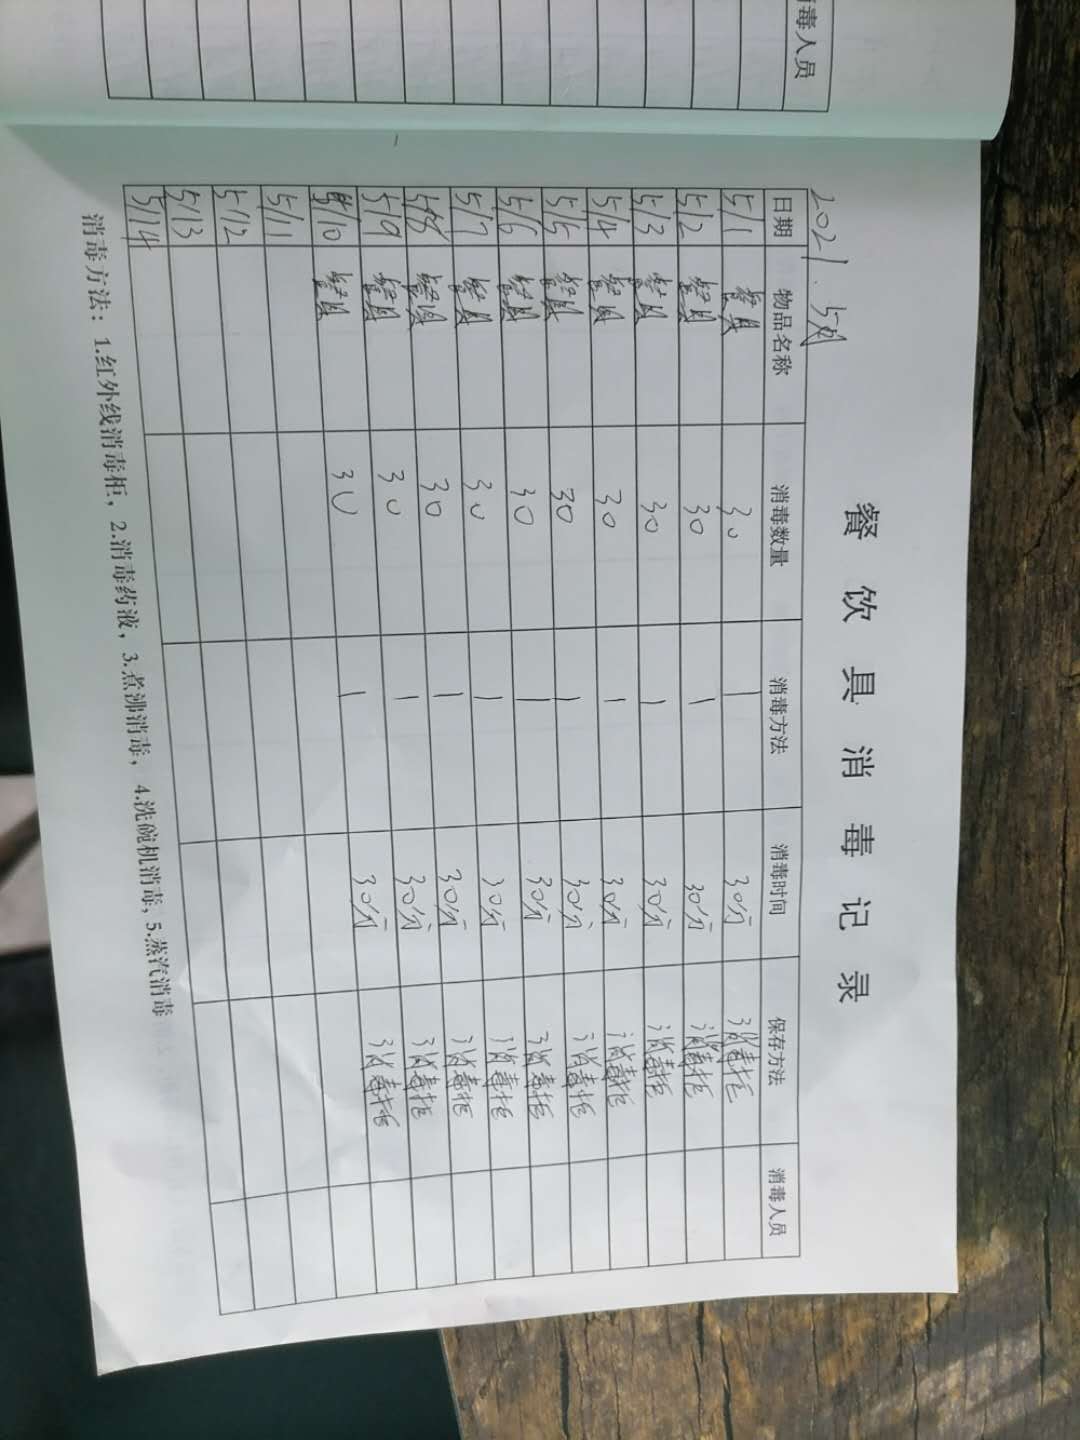 毒人员
餐饮具消毒记录
2021.5月
日期 物品名称 消毒数量 消毒方法 消毒时间 保存方法 消毒人员
5/1 餐具 30 1 30分 消毒柜
5/2 餐具 30 1 30分 消毒柜
5/3 餐具 30 1 30分 消毒柜
5/4 餐具 30 1 30分 消毒柜
5/5 餐具 30 1 30分 消毒柜
5/6 餐具 30 1 30分 消毒柜
5/7 餐具 30 1 30分 消毒柜
5/8 餐具 30 1 30分 消毒柜
5/9 餐具 30 1 30分 消毒柜
5/10 餐具 30 1 30分 消毒柜
5/11
5/12
5/13
5/14
消毒方法：1.红外线消毒柜，2.消毒药液，3.煮沸消毒，4.洗碗机消毒，5.蒸汽消毒